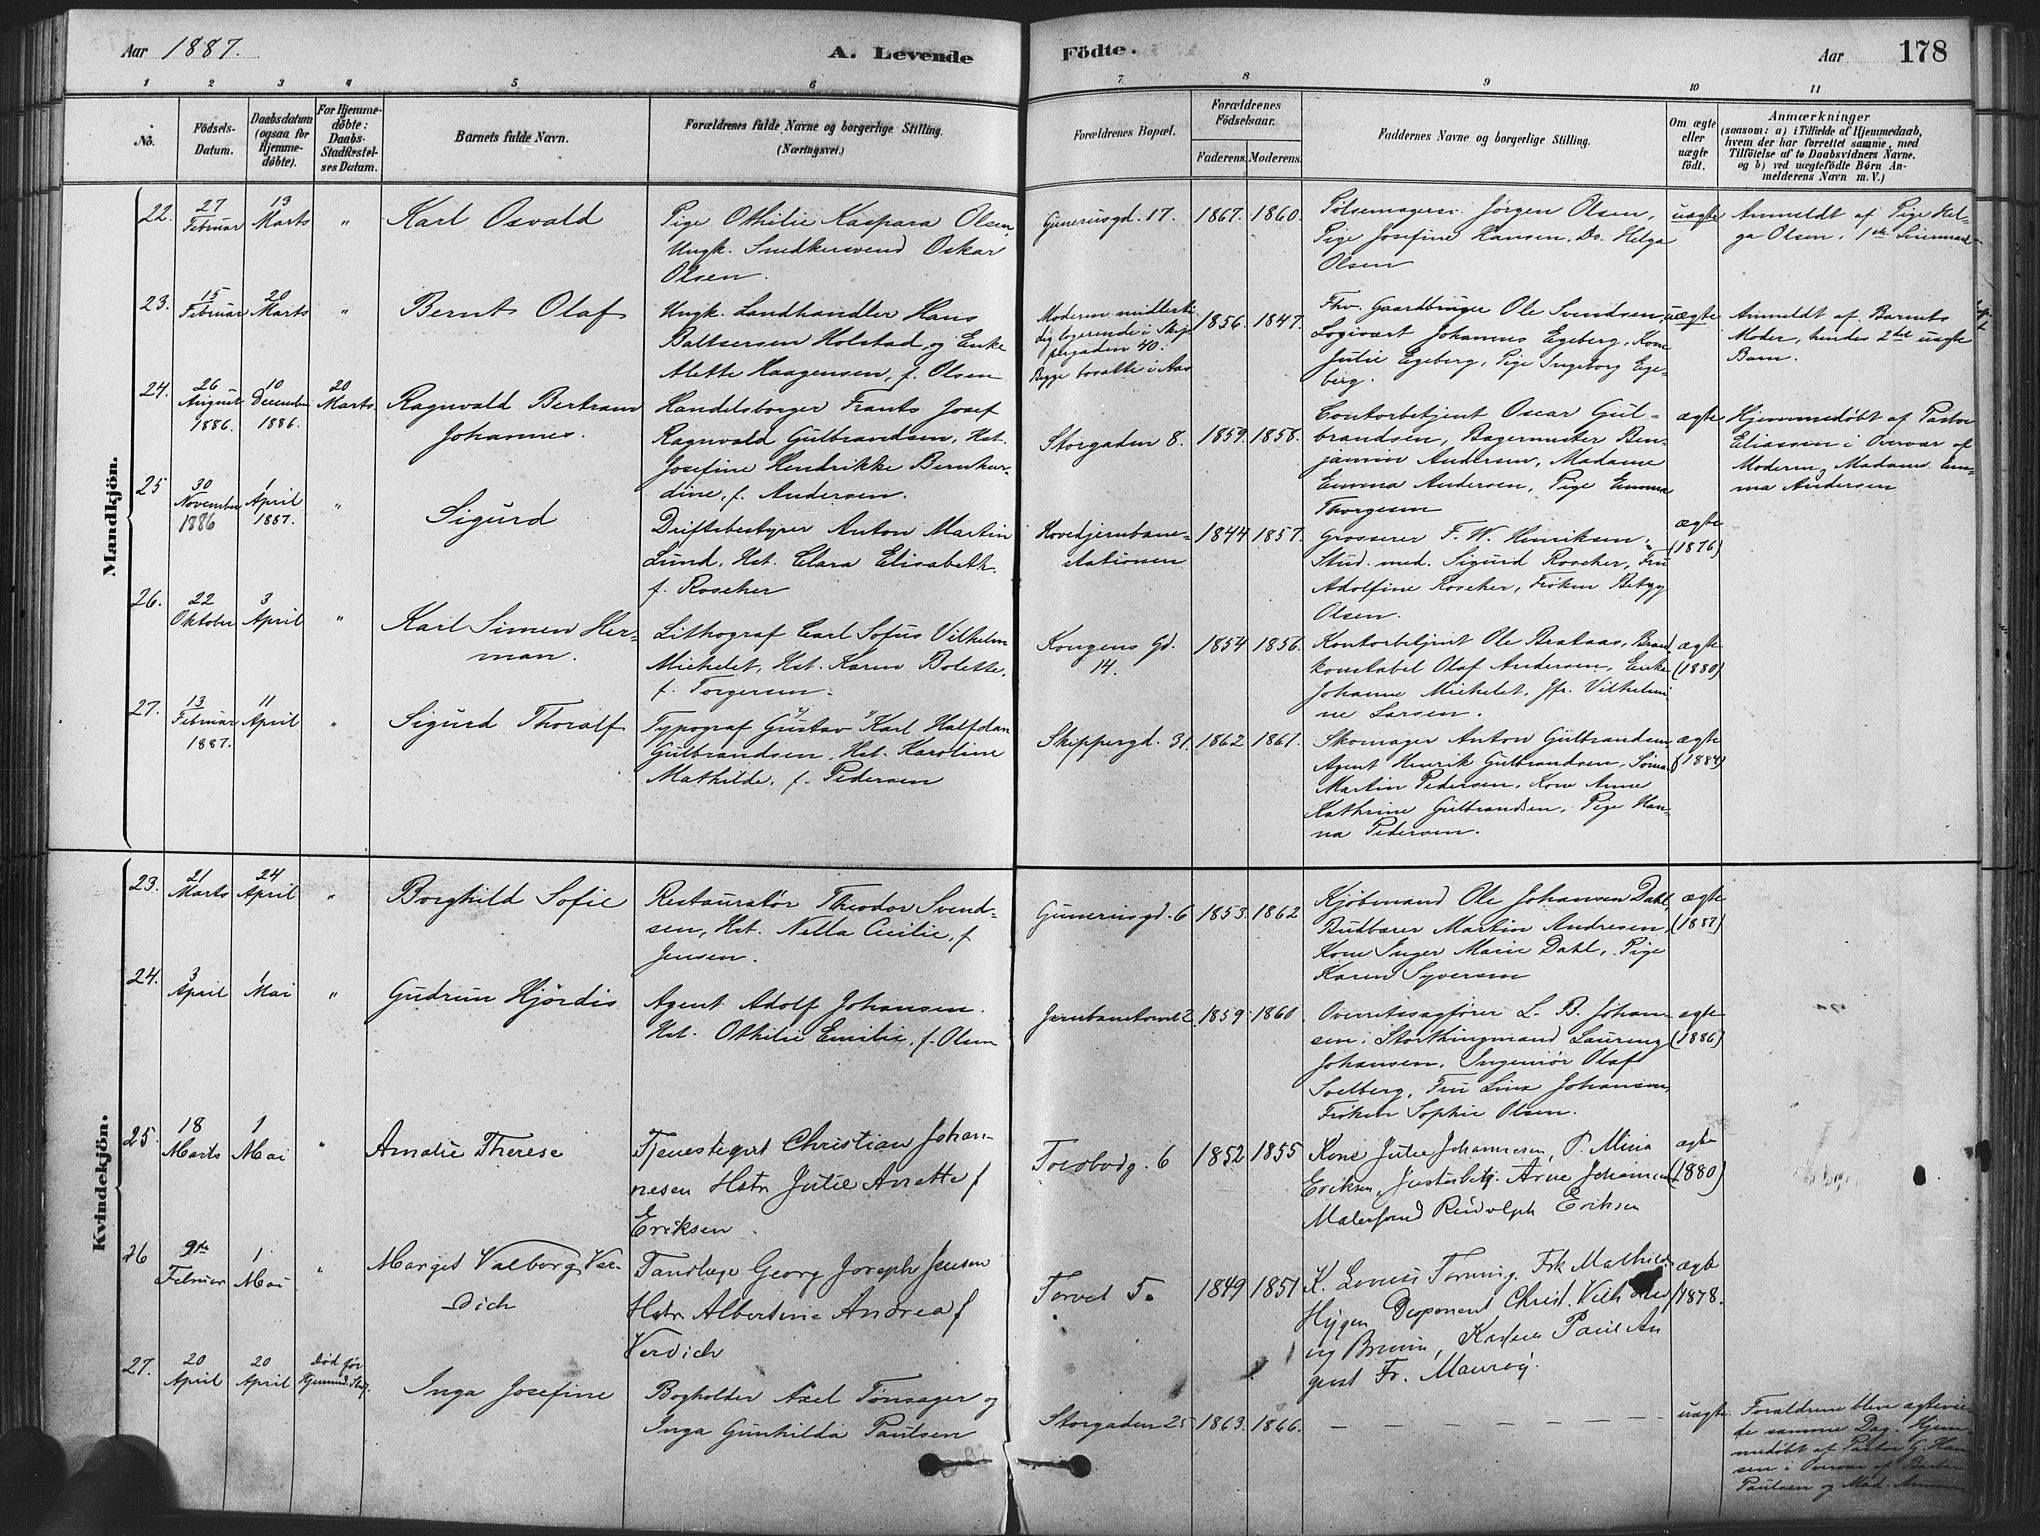 Aar 1887.
A. Levende
Födte.
Aar
178
1
2
3
4
5
6
7
8
9
10
11
No.
Födsels-
Datum.
Daabsdatum
(ogsaa for
Hjemme-
døbte).
For Hjemme-
døbte:
Daabs-
Stadfæstel-
ses Datum.
Barnets fulde Navn.
Forældrenes fulde Navne og borgerlige Stilling.
(Næringsvei.)
Forældrenes Bopæl.
Forældrenes
Födselsaar.
Faderens.
Moderens.
Faddernes Navne og borgerlige Stilling.
Om ægte
eller
uægte
födt.
Anmærkninger
(saasom: a) i Tilfælde af Hjemmedaab,
hvem der har forrettet samme, med
Tilföielse af to Daabsvidners Navne.
og b) ved uægtefödte Börn An-
melderens Navn m. V.)
Mandkjön.
22.
27
Februar
13
Marts
"
Karl Osvald
Pige Othilie Kaspara Olsen,
Ungk. Snedkersvend Oskar
Olsen.
Gunerusgd. 17.
1867.
1860.
Pölsemager Jörgen Olsen,
Pige Josefine Hansen, Do. Helga
Olsen
uægte
Anmeldt af Pige Hel-
ga Olsen. 1ste
23.
15
Februar
20
Marts
"
Bernt Olaf
Ungk. Landhandler Hans
Baltsersen Holstad, og Enke
Alette Haagensen, f. Olsen
Moderen midlerti
dig logerende i Skip
pergaden 40.
Begge bosatte i Aas
1856.
1847.
Fhv. Gaardbruger Ole Svendsen,
Logivært Johannes Egeberg, Kone
Julie Egeberg, Pige Ingeborg Ege-
berg.
uægte
Anmeldt af Barnets
Moder, hendes 2det uægte
Barn.
24.
26
August
1886.
10
December
1886.
20
Marts
Ragnvald Bertram
Johannes.
Handelsborger Frants Josef
Ragnvald Gulbrandsen, Hst.
Josefine Hendrikke Bernhar-
dine, f. Andersen.
Storgaden 8.
1859.
1858.
Contorbetjent Oscar Gul-
brandsen, Bagermester Ben-
jamin Andersen, Madame
Emma Andersen, Pige Emma
Thorgesen
ægte
Hjemmedøbt af Pastor
Eliassen i Overvær af
Moderen, Madame Em-
ma Andersen
25
30
November
1886
1
April
1887.
"
Sigurd
Driftsbestyrer Anton Martin
Lund, Hst. Clara Elisabeth
f. Roscher
Hovedjernbane-
stationen
1844
1857.
Grosserer F. W. Henriksen,
Stud. med. Sigurd Roscher, Fru
Adolfine Roscher, Frøken Betzy
Olsen.
ægte
(1876)
26.
22
Oktober
3
April
"
Karl Simen Her-
man.
Lithograf Carl Sofus Vilhelm
Michelet, Hst. Karen Bolette,
f. Torgersen.
Kongens Gd.
14.
1854
1856.
Kontorbetjent Ole Brataas, Brand
konstabel Olaf Andersen, Enke
Johanne Michelet, Jfr. Vilhelmi
ne Larsen.
ægte
(1880)
27.
13
Februar
1887.
11
April
"
Sigurd Thoralf
Typograf "Gustav" Karl Halfdan
Gulbrandsen, Hst. Karoline
Mathilde, f. Pedersen
Skippergd. 31.
1862
1861.
Skomager Anton Gulbrandsen,
Agent Henrik Gulbrandsen, Sømand
Martin Pedersen, Kone Anne
Kathrine Gulbrandsen, Pige Han-
na Pedersen.
ægte
(1884)
Kvindekjön.
23.
21
Marts
24
April
"
Borghild Sofie
Restauratør Theodor Svend-
sen, Hst. Nella Cecilie, f
Jensen.
Gunerusgd. 6
1853.
1862
Kjøbmand Ole Johansen Dahl,
Budbærer Martin Andresen,
Kone Inger Marie Dahl, Pige
Karen Syversen
ægte
24.
3
April
1
Mai
"
Gudrun Hjördis
Agent Adolf Johansen.
Hst. Othilie Emilie, f. Olsen
Jernbanetorvet 2
1859
1860
Overretssagfører L. B. Johan-
sen, Storthingmand Lauring
Johansen, Ingeniør Olaf
Solberg, Fru Lina Johansen,
Frøken Sophie Olsen.
ægte
(1886)
25.
18
Marts
1
Mai
"
Amalie Therese
Tjenestegut Christian Johan-
nesen Hstr Julie Anette f
Eriksen.
Toldbodg. 6
1852
1855
Kone Julie Johannesen, P. Mina
Eriksen, Justerbetj. Arne Johannesen
Malersvend Rudolph Eriksen
ægte
(1880)
26
9de
Februar
1
Mai
"
Margit Valborg Ver-
dich
Tandlæge Georg Joseph Jensen
Hstr Albertine Andrea f
Verdich
Torvet 5.
1849
1851
K. Lovise Frk Mathilde
Hygen Deponent Christ.
Bruun, Paul Au
gust Fr.
ægte
(1878.
27.
20
April
20
April
Død før
Hjemmed. Stadf.
Inga Josefine
Bogholder Axel Tønsager og
Inga Gunhilda Paulsen
Storgaden 25
1863.
1866.
uægte
Forældrene blev ægtevie
de samme Dag. Hjem
medøbt af Pastor G. Han
sen i Overvær af Barber
Paulsen og Mad.